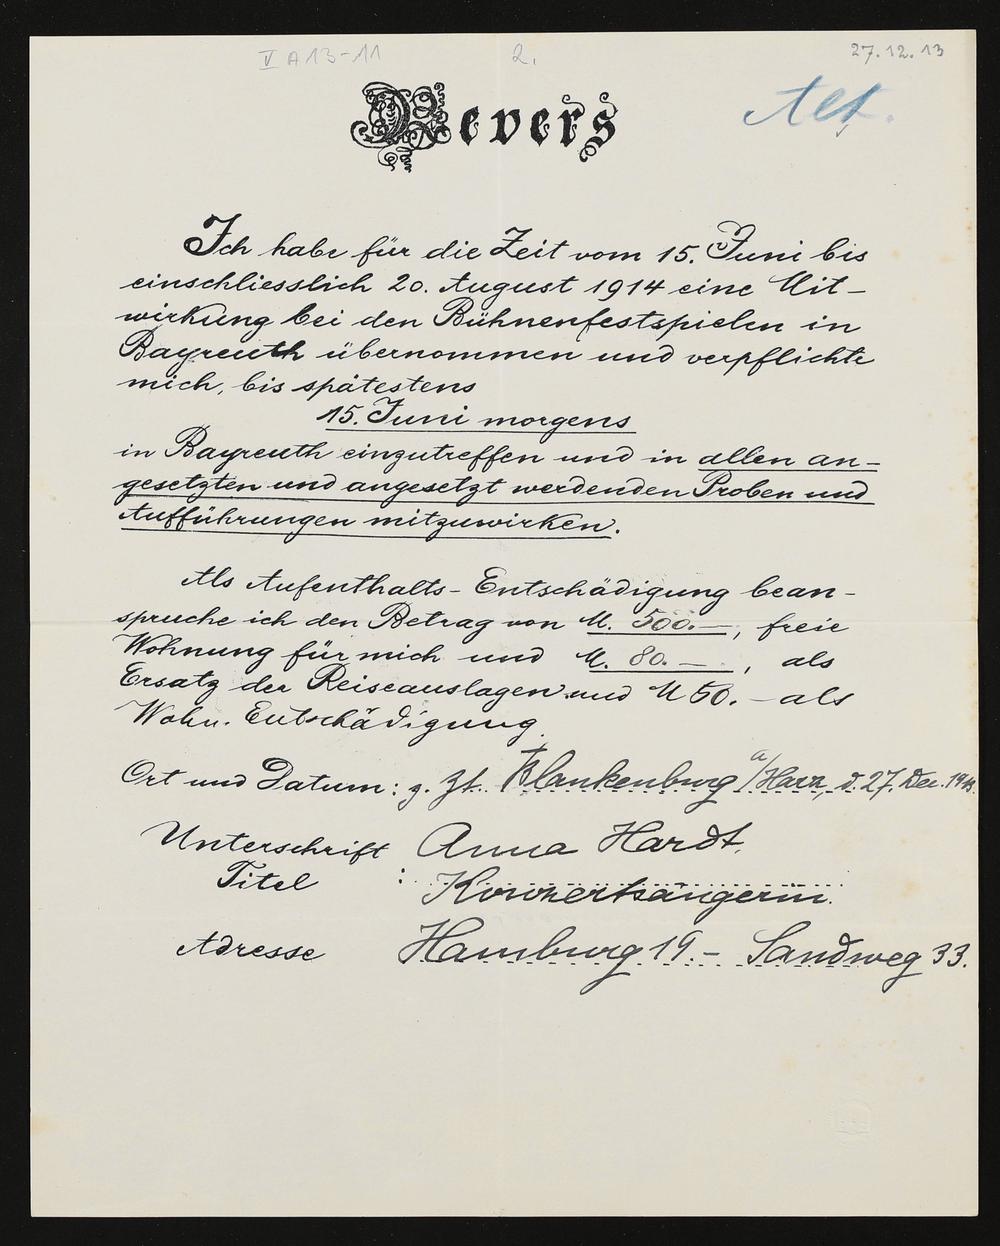 V A 13-11
2.
27.12.13
Alt.
Revers
Ich habe für die Zeit vom 15. Juni bis
einschliesslich 20. August 1914 eine Mit-
wirkung bei den Bühnenfestspielen in
Bayreuth übernommen und verpflichte
mich, bis spätestens
15. Juni morgens
in Bayreuth einzutreffen und in allen an-
gesetzten und angesetzt werdenden Proben und
Aufführungen mitzuwirken.
Als Aufenthalts-Entschädigung bean-
spruche ich den Betrag von M. 500.—, freie
Wohnung für mich und M. 80.—, als
Ersatz der Reiseauslagen und M 50.— als
Wohn. Entschädigung.
Ort und Datum: z. Zt. Blankenburg a/Harz, d. 27. Dec. 1913.
Unterschrift Anna Hardt.
Titel : Konzertsängerin.
Adresse Hamburg 19.- Sandweg 33.